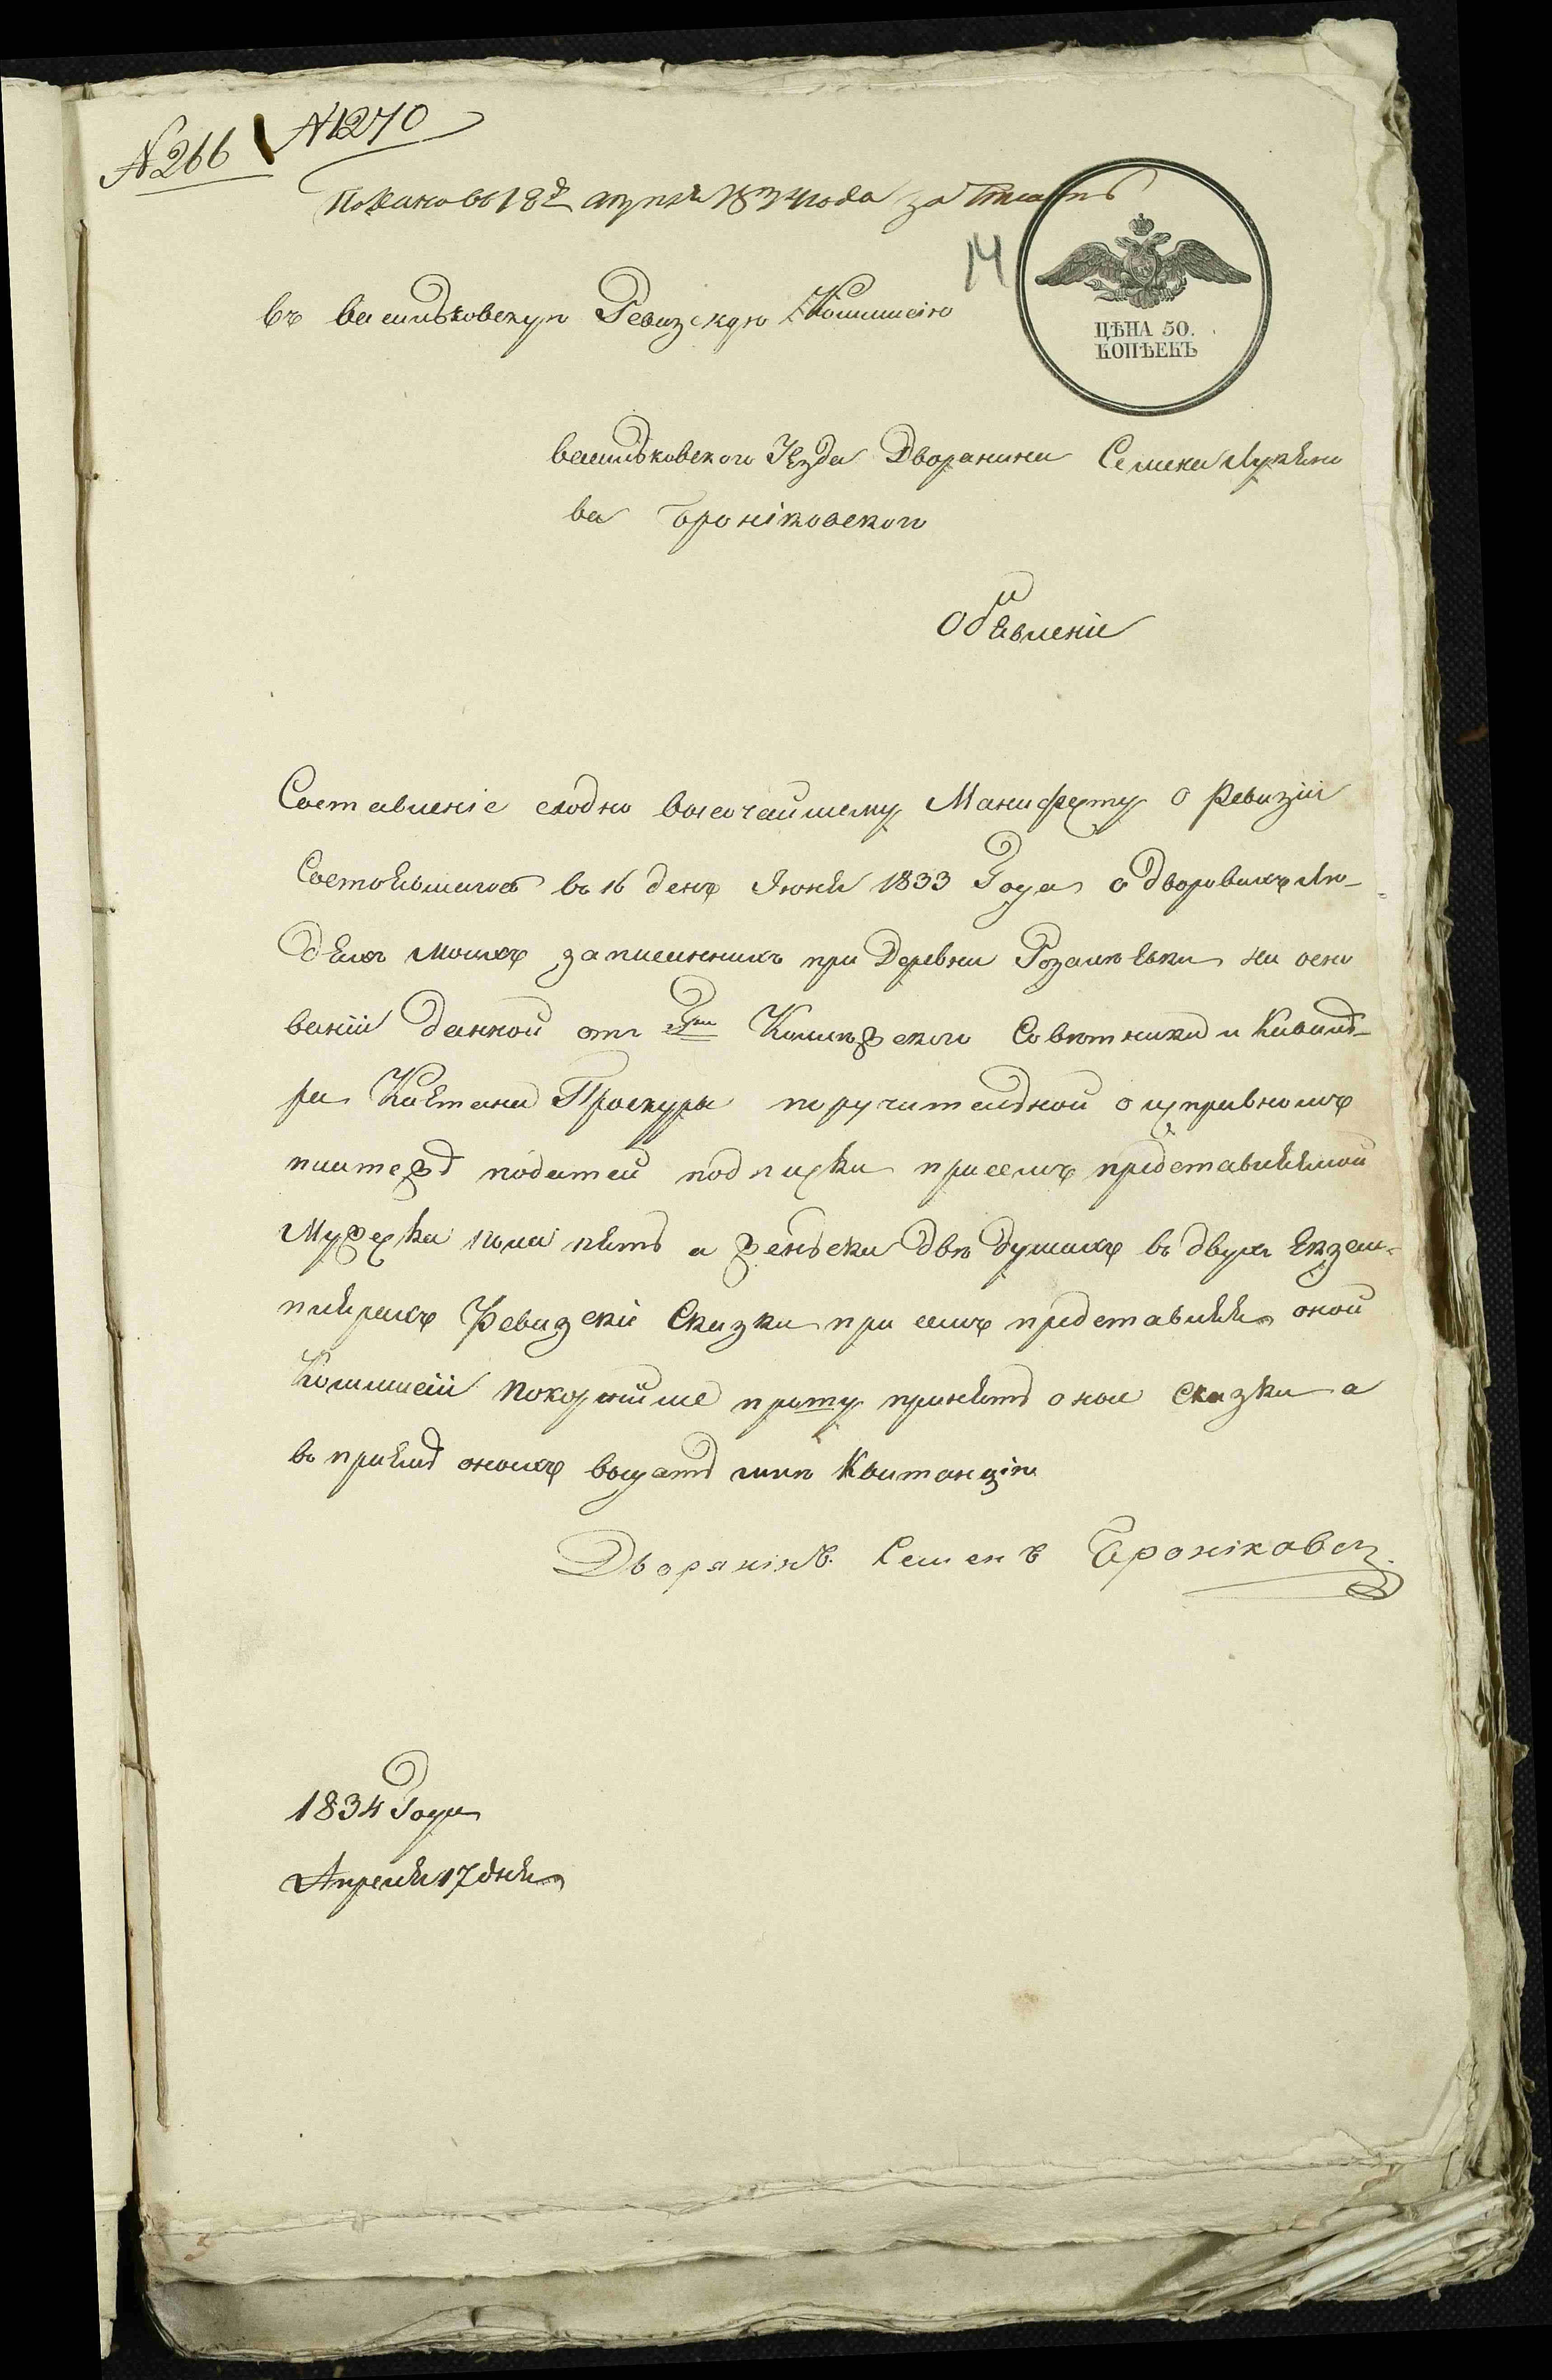 №266 №1270
Подано въ 18 д апреля 1834 года
14
ЦѢНА 50.
КОПѢЕКЪ
въ васильковскую Ревизскую Коммисію
васильковского Уезда Дворанина Семена Лукяно
ва Броніковского
Объявленіе
Составленіе слодно высочайшему Манифесту о Ревизіи
Состоявшагось въ 16 день Июня 1833 Года о дворовыхъ Лю-
дяхъ моихъ записанныхъ при Деревни на осно
ваніи данной отъ Гна Колежского Совѣтника и Кавале-
ра Каетана Проскуры поручительной о исправномъ
платежѣ податей подписки присемъ представляемой
Мужеска пола пять а женьска двѣ душахъ въ двухъ Екзем-
плярахъ Ревизскіе Сказки при семъ представляя оной
Коммисіи покорнѣйше прошу принять оные сказки а
въ пріемѣ оныхъ выдать мнѣ Квитанцію
Дворянінъ Семенъ Броніковск
1834 Года
Апреля 17 дня